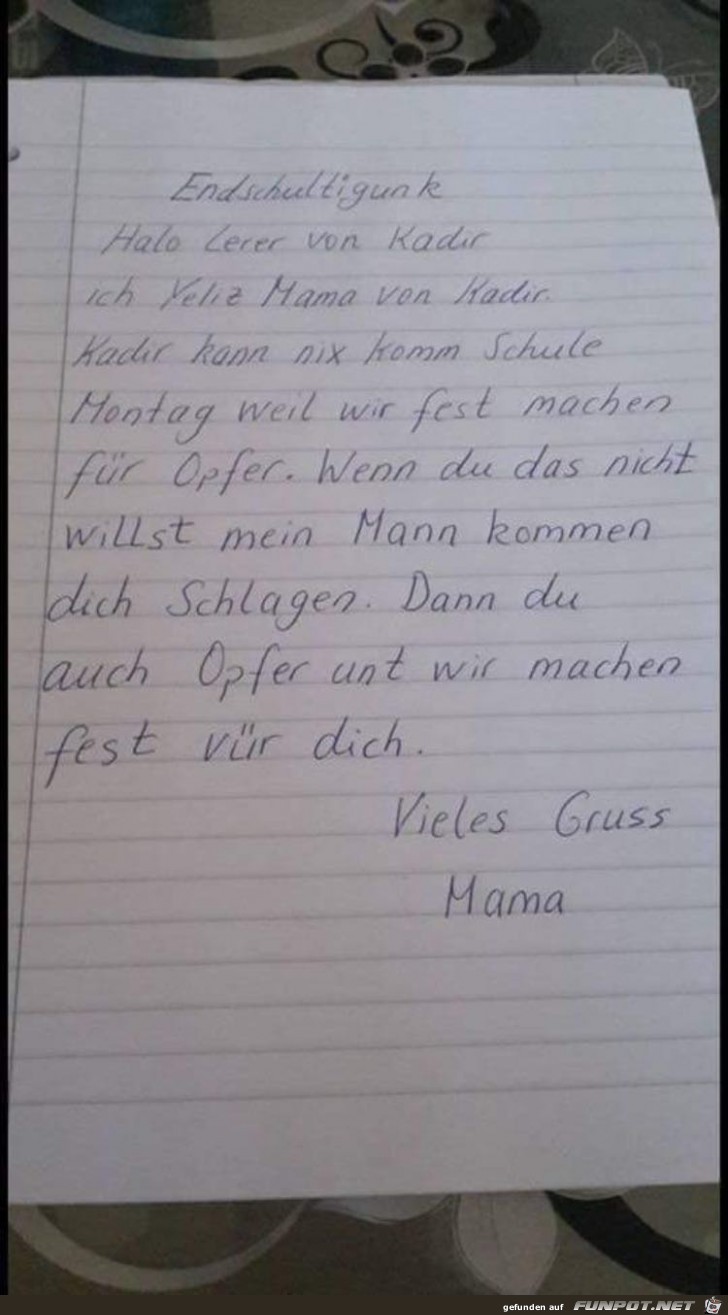 Endschultigunk
Halo Lerer von Kadir
ich Yeliz Mama von Kadir.
Kadir kann nix komm Schule
Montag weil wir fest machen
für Opfer. Wenn du das nicht
willst mein Mann kommen
dich Schlagen. Dann du
auch Opfer unt wir machen
fest vür dich.
Vieles Gruss
Mama
gefunden auf FUNPOT.NET